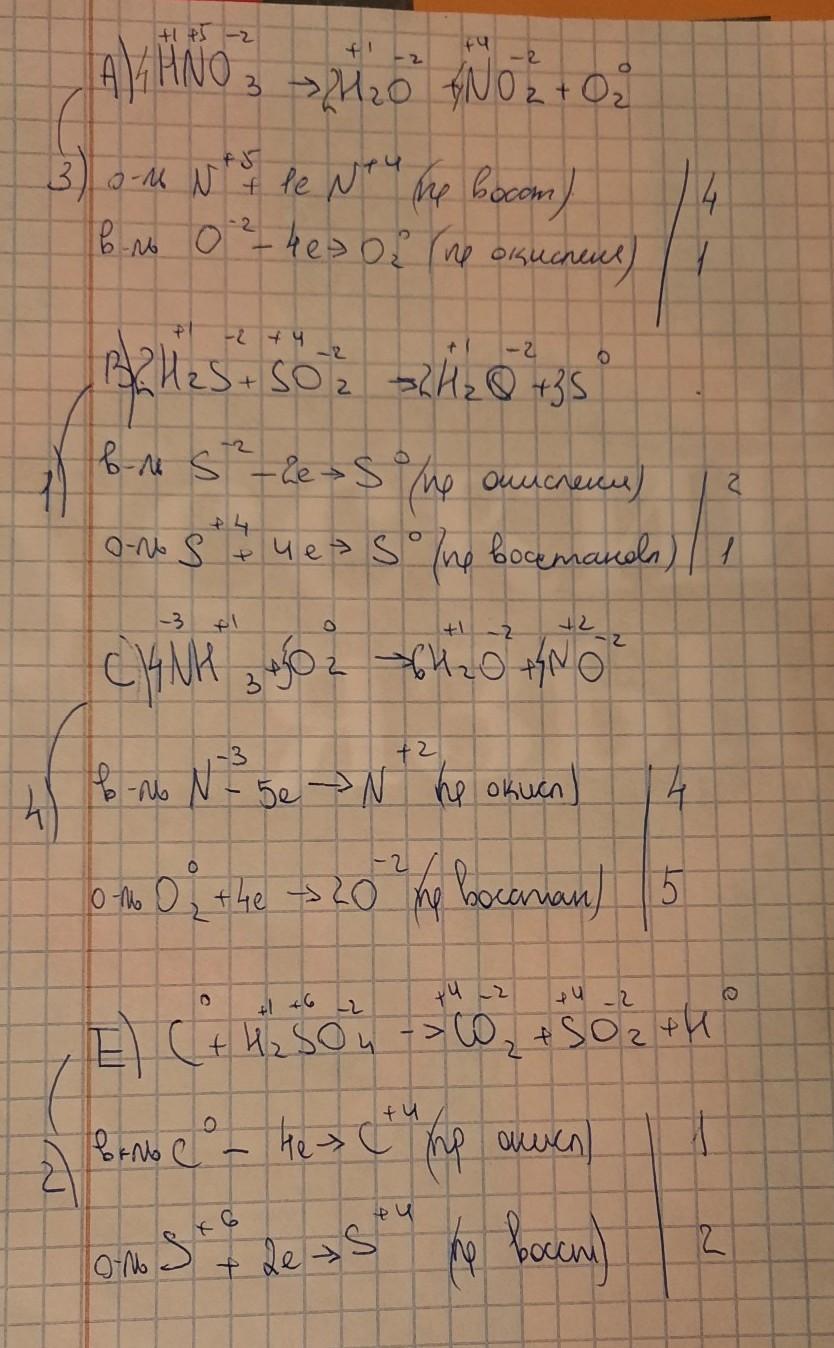 A) 4H⁺¹N⁺⁵O₃⁻² → 2H₂⁺¹O⁻² + 4N⁺⁴O₂⁻² + O₂⁰
3) о-ль N⁺⁵ + 1e N⁺⁴ (пр восст) | 4
в-ль O⁻² - 4e → O₂⁰ (пр окисления) | 1
B) 2H₂⁺¹S⁻² + S⁺⁴O₂⁻² → 2H₂⁺¹O⁻² + 3S⁰
1) в-ль S⁻² - 2e → S⁰ (пр окисления) | 2
о-ль S⁺⁴ + 4e → S⁰ (пр восстановл) | 1
C) 4N⁻³H₃⁺¹ + 5O₂⁰ → 6H₂⁺¹O⁻² + 4N⁺²O⁻²
4) в-ль N⁻³ - 5e → N⁺² (пр окисл) | 4
о-ль O₂⁰ + 4e → 2O⁻² (пр восстан) | 5
E) C⁰ + H₂⁺¹S⁺⁶O₄⁻² → C⁺⁴O₂⁻² + S⁺⁴O₂⁻² + H⁰
2) в-ль C⁰ - 4e → C⁺⁴ (пр окисл) | 1
о-ль S⁺⁶ + 2e → S⁺⁴ (пр восст) | 2